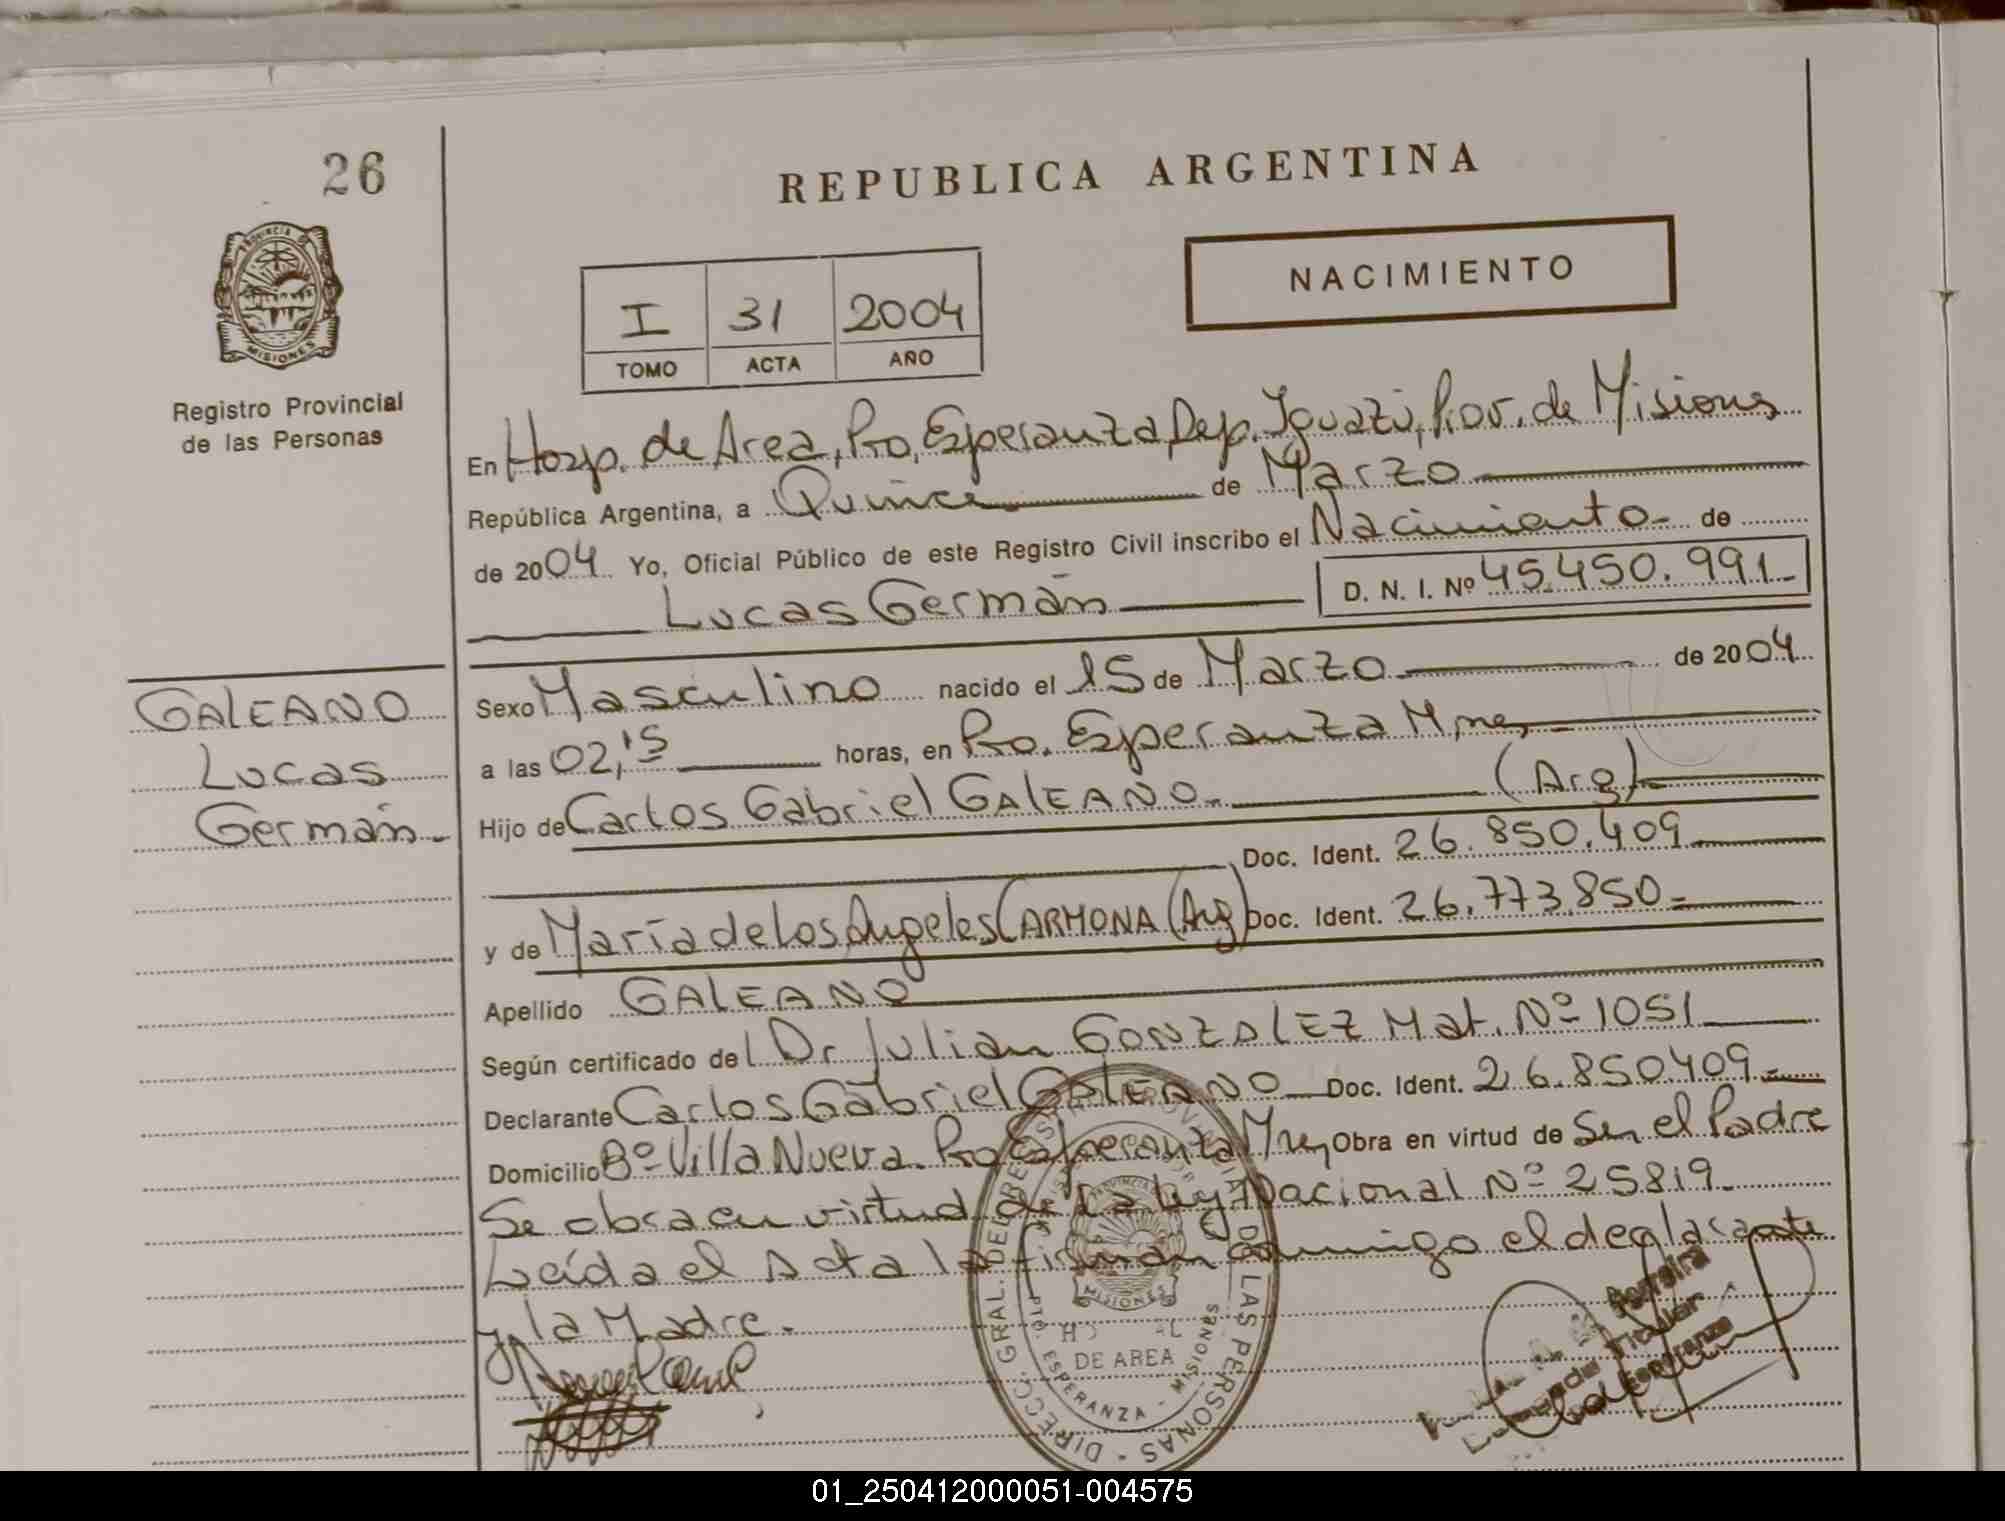 26
REPUBLICA ARGENTINA
NACIMIENTO
I 31 2004
TOMO ACTA AÑO
PROVINCIA DE
MISIONES
Registro Provincial
de las Personas
En Hosp. de Area, Pto, Esperanza, Dep. Iguazú, Prov. de Misiones
República Argentina, a Quince de Marzo
de 2004 Yo, Oficial Público de este Registro Civil inscribo el Nacimiento- de
Lucas Germán D. N. I. Nº 45.450.991-
GALEANO
Lucas
Germán-
Sexo Masculino nacido el 15 de Marzo de 2004
a las 02,15 horas, en Pto. Esperanza Mnes
Hijo de Carlos Gabriel GALEANO.- (Arg)
Doc. Ident. 26.850.409
y de María de los Angeles CARMONA (Arg) Doc. Ident. 26.773.850=
Apellido GALEANO
Según certificado del Dr Julian GONZALEZ Mat. Nº 1051
Declarante Carlos Gabriel GALEANO Doc. Ident. 26.850.409-
Domicilio Bº Villa Nueva. Pto Esperanza Mnes Obra en virtud de Ser el Padre
Se obra en virtud de la Ley Nacional Nº 25819-
Leída el Acta la firman conmigo el declarante
y la Madre.
DIRECC. GRAL. DEL REG. PROVINCIAL DE LAS PERSONAS
PROVINCIA
MISIONES
DE AREA
PTO. ESPERANZA - MISIONES
Ferreira
Titular
Esperanza
01_250412000051-004575